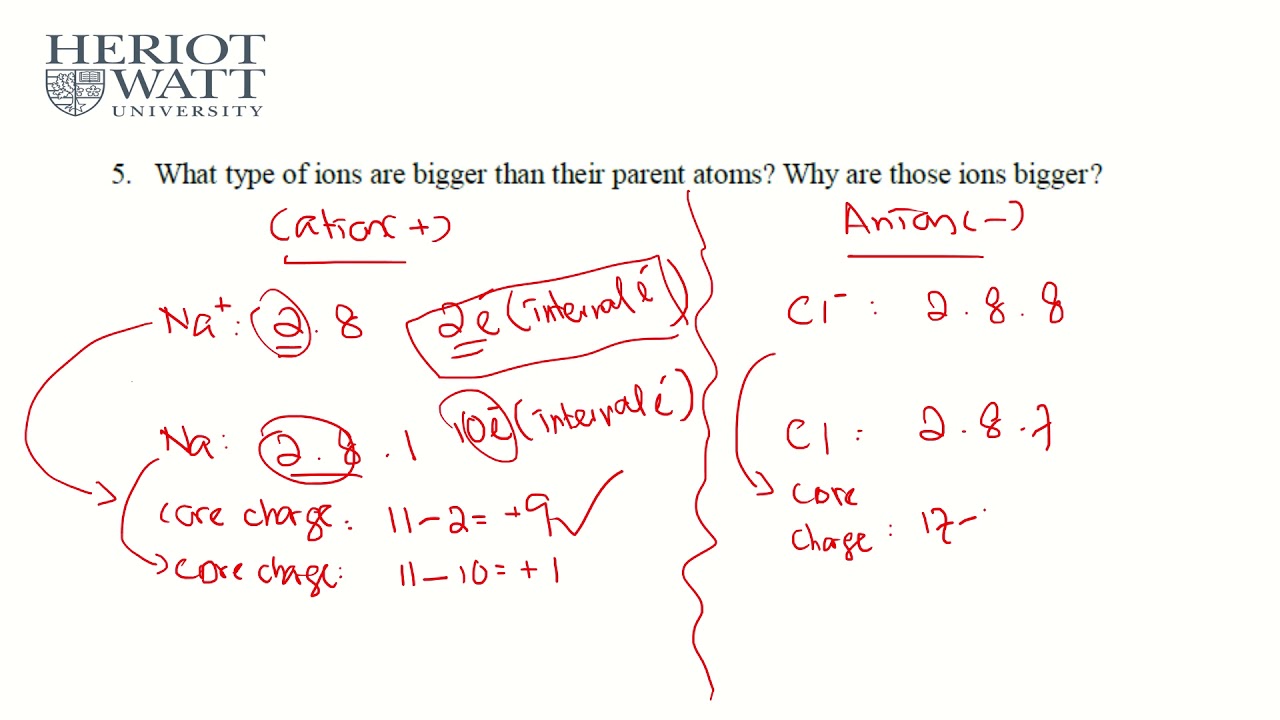 HERIOT
WATT
UNIVERSITY
5. What type of ions are bigger than their parent atoms? Why are those ions bigger?
Cation(+)
Na⁺: 2.8
2é (internal é)
Na: 2.8.1
10é (internal é)
core charge: 11-2=+9✓
core charge: 11-10=+1
Anion(-)
Cl⁻: 2.8.8
Cl: 2.8.7
core
charge: 17-